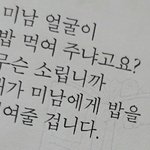 미남 얼굴이
밥 먹여 주냐고요?
무슨 소립니까
미남에게 밥을
여줄 겁니다.